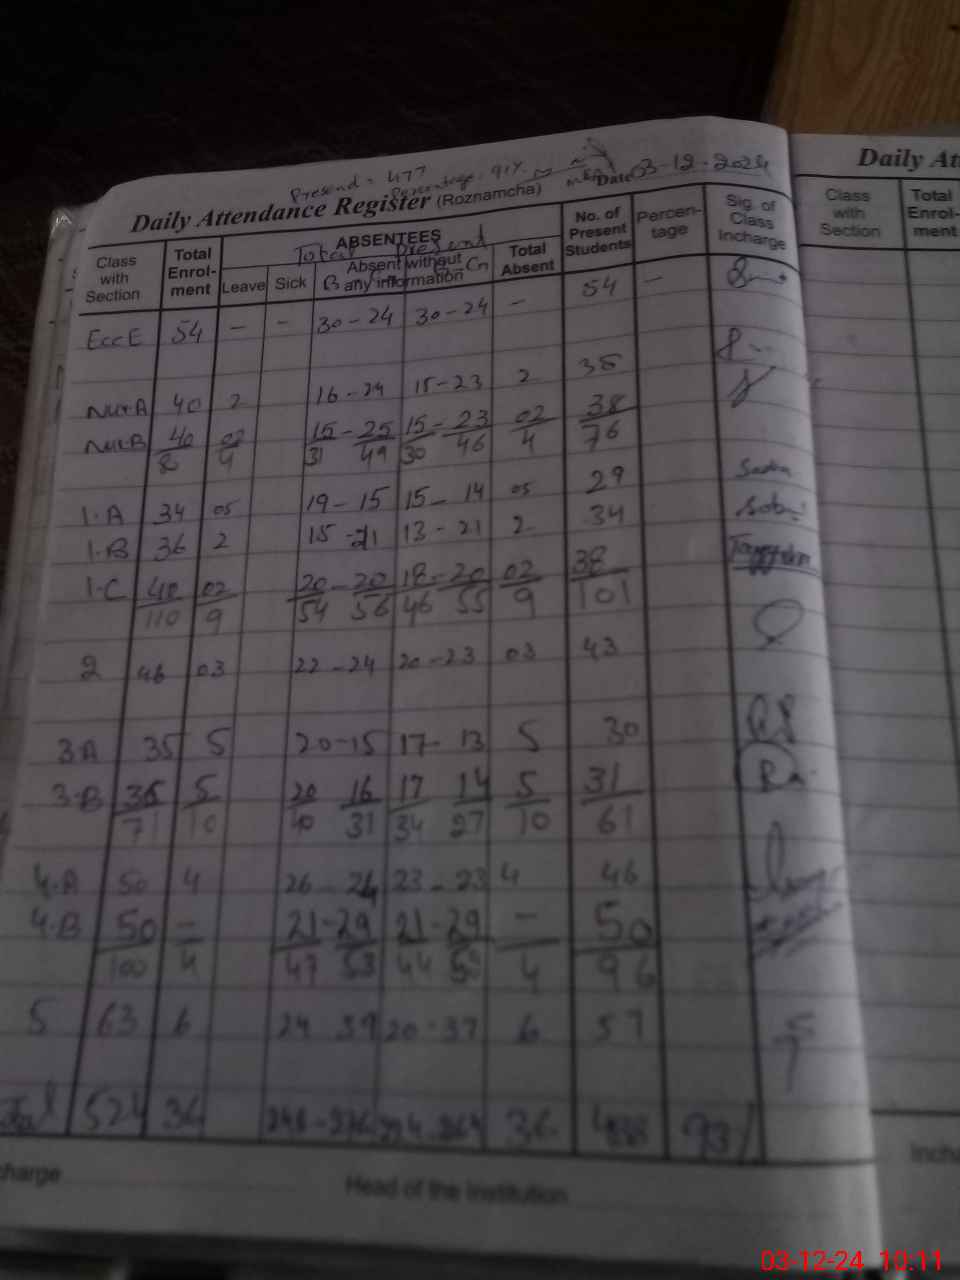 Present = 477
Percentage = 91%.
Daily Attendance Register (Roznamcha)
Date 03-12-2024
Daily At
Class with Section
Total Enrol-ment
ABSENTEES
Total Present
Leave
Sick
B
Absent without any information
G
Total Absent
No. of Present Students
Percen-tage
Sig. of Class Incharge
Class with Section
Total Enrol-ment
EccE 54 - - 30-24 30-24 - 54 -
Nur A 40 2 16-24 15-23 2 38
Nur B 40 02 15-25 15-23 02 38
8 4 31 49 30 46 4 76
1.A 34 05 19-15 15-14 05 29
1.B 36 2 15-21 13-21 2 34
1.C 40 02 20-20 18-20 02 38
110 9 54 56 46 55 9 101
2 46 03 22-24 20-23 03 43
3.A 35 5 20-15 17-13 5 30
3.B 36 5 20 16 17 14 5 31
71 10 40 31 34 27 10 61
4.A 50 4 26-24 23-23 4 46
4.B 50 - 21-29 21-29 - 50
100 4 47 53 44 4 96
5 63 6 24 39 20-37 6 57
Total 524 36 36 488 93%
charge
Head of the Institution
Incha
03-12-24 10:11